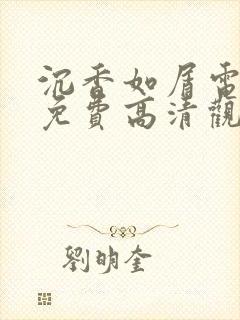 沉香如屑電
免費高清觀
劉明奎